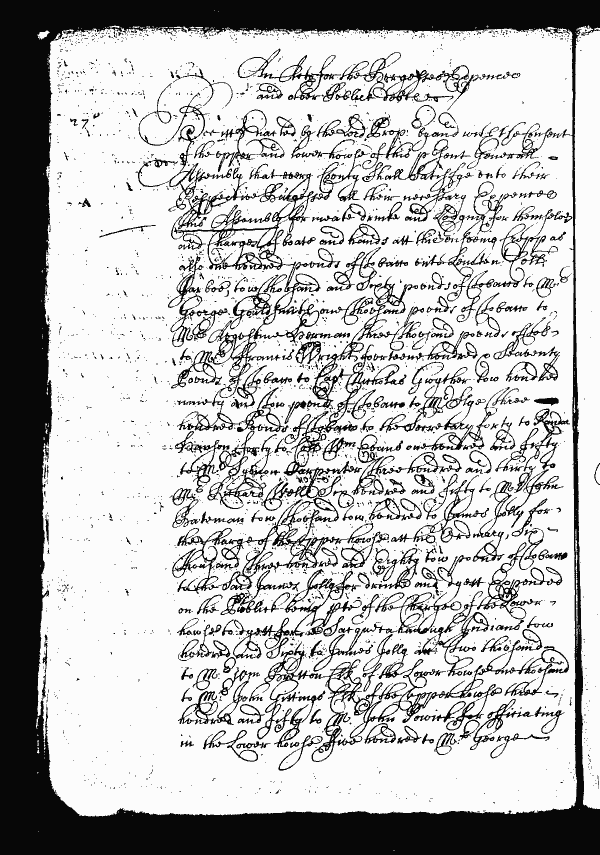 An Acte for the Burgesses Expences
and other Publick debts
27º
Bee itt Enacted by the Lord Propr by and with the Consent
of the upper and lower howse of this p'sent Generall
Assembly that every County shall satisfye unto their
Respective Burgesses all their necessary Expences
this Assembly for meate drinke and Lodging for themselves
A
and Charges of boate and hands att the ensueing Cropp as
allso one hundred pounds of tobacco unto Leuten Coll
Jarboe, tow thousand and Sixty pounds of tobacco to Mr
George Gouldsmith one thousand pounds of tobacco to
Mr Augustine Herman three thousand pounds of tob
to Mr Francis Wright fourteene hundred & Seaventy
Pounds of tobacco to Capt Nicholas Gwyther tow hundred
ninety and tow pounds of tobacco to Mr Slye three
hundred Pounds of tobacco to the Secretary forty to
Dawson forty to Coll Wm Evans one hundred and fifty
to Mr Symon Carpenter three hundred and thirty to
Mr Richard Wells Six hundred and fifty to Mr John
Bateman tow thousand tow hundred to James Jolly for
the Charge of the upper howse att his Ordinary, Six
thousand three hundred and Eighty tow pounds of tobacco
to the said James Jolly for drinke and dyett Expended
on the Publick being pte of the Charge of the Lower
howse to dyett for Sasquetahanough Indians tow
hundred and Sixty to James Jolly two thousand
to Mr Wm Bretton Clk of the Lower howse one thousand
to Mr John Gittings Clk of the upper howse three
hundred and fifty to Mr John for officiating
in the Lower howse five hundred to Mr George